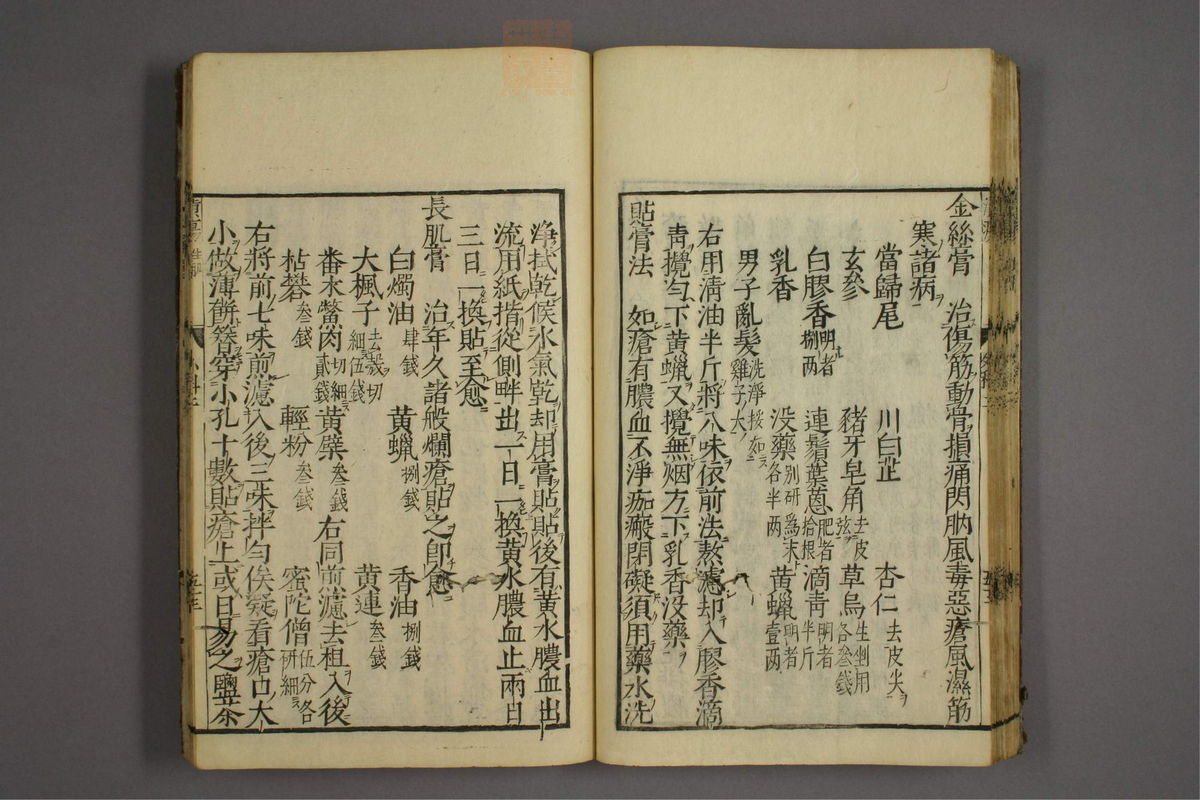 金絲膏 治傷筋動骨損痛閃肭風毒惡瘡風濕筋
寒諸病
當歸尾 川白芷 杏仁去皮尖
玄參 豬牙皂角去皮弦 草烏生剉用各叁錢
白膠香明者捌両 連鬚葉蔥肥者拾根 滴青明者半斤
乳香 没藥別研為末各半両 黄蠟明者壹両
男子亂髮洗淨挼如雞子大
右用清油半斤將八味依前法熬濾却入膠香滴
青攪勻下黄蠟又攪無烟方下乳香没藥
貼膏法 如瘡有膿血不淨痂瘢閉礙須用藥水洗
淨拭乾候水氣乾却用膏貼貼後有黄水膿血出
流用紙揩從側畔出一日一換黄水膿血止兩日
三日一換貼至愈
長肌膏 治年久諸般爛瘡貼之即愈
白燭油肆錢 黄蠟捌錢 香油捌錢
大楓子去殼切細伍錢 黄連叁錢
番木鱉肉切細貳錢 黄檗叁錢 右同煎濾去柤入後
枯礬叁錢 輕粉叁錢 蜜陀僧伍分各研細
右將前七味煎濾入後三味拌勻俟凝看瘡口大
小做薄餅簪穿小孔十數貼瘡上或日易之盥